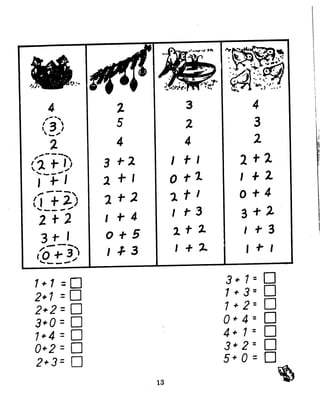 4 2 3 4
3 5 2 3
2 4 4 2
2 + 1 3 + 2 1 + 1 2 + 2
1 + 1 2 + 1 0 + 2 1 + 2
1 + 2 2 + 2 2 + 1 0 + 4
2 + 2 1 + 4 1 + 3 3 + 2
3 + 1 0 + 5 2 + 2 1 + 3
0 + 3 1 + 3 1 + 2 1 + 1
1+1 =
2+1 =
2+2 =
3+0 =
1+4 =
0+2 =
2+3=
3+ 1 =
1 + 3 =
1 + 2 =
0 + 4 =
4+ 1 =
3+ 2 =
5+ 0 =
13